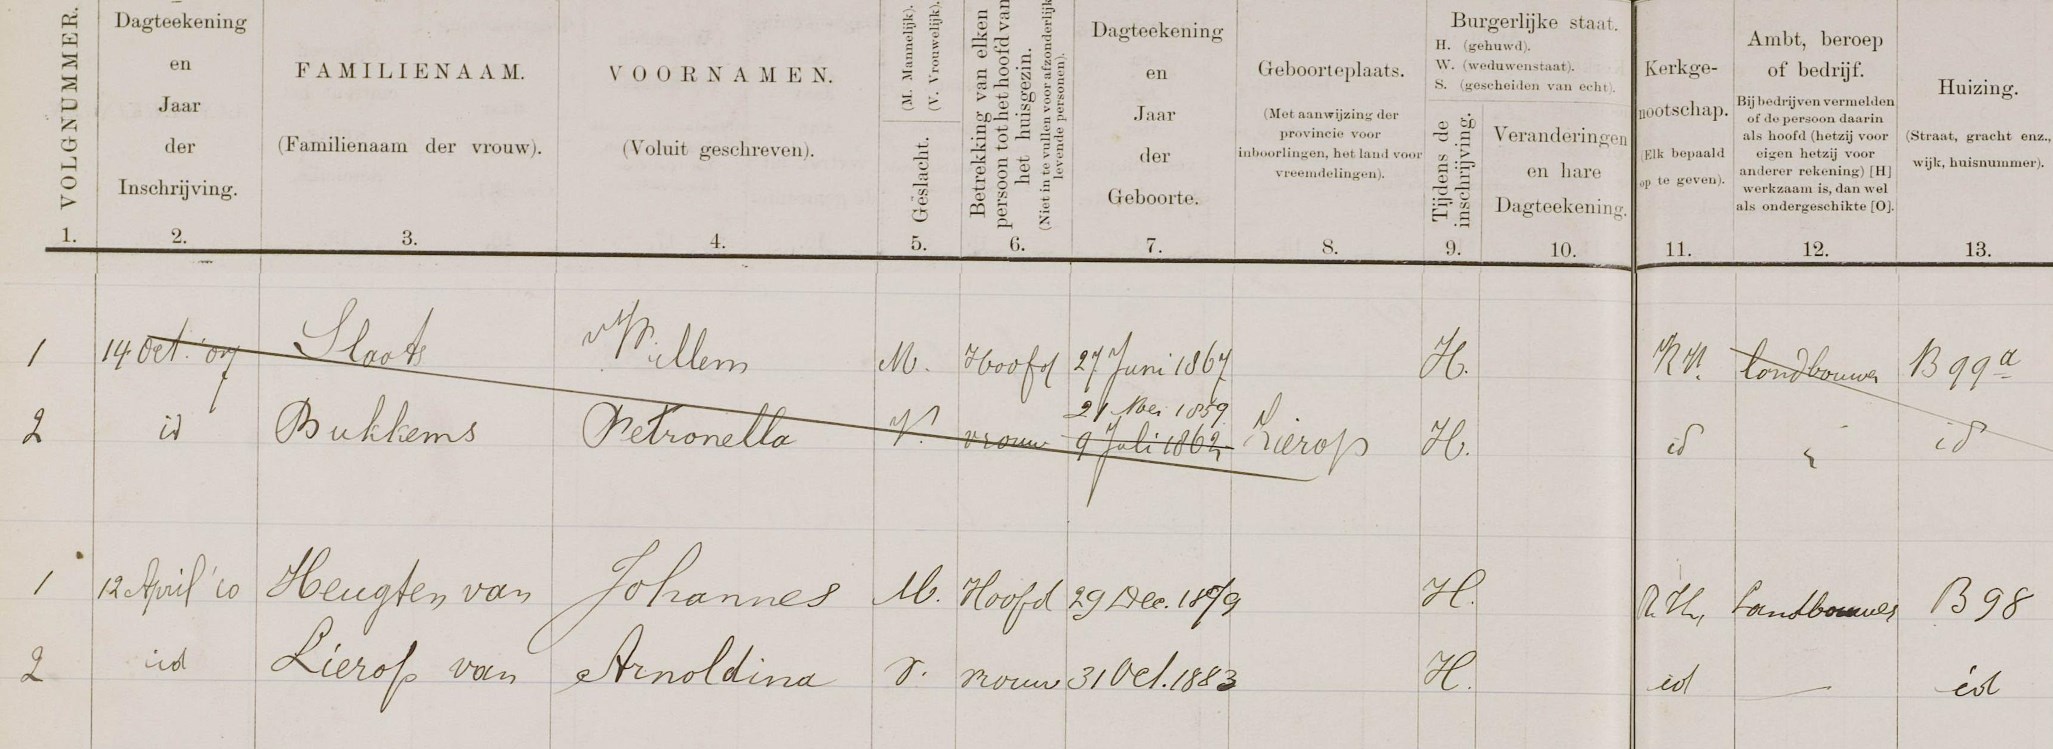 VOLGNUMMER.
1.
Dagteekening
en
Jaar
der
Inschrijving.
2.
FAMILIENAAM.
(Familienaam der vrouw).
3.
VOORNAMEN.
(Voluit geschreven).
4.
(M. Mannelijk).
(V. Vrouwelijk).
Geslacht.
5.
Betrekking van elken
persoon tot het hoofd van
het huisgezin.
(Niet in te vullen voor afzonderlijk
levende personen).
6.
Dagteekening
en
Jaar
der
Geboorte.
7.
Geboorteplaats.
(Met aanwijzing der
provincie voor
inboorlingen, het land voor
vreemdelingen).
8.
Burgerlijke staat.
H. (gehuwd).
W. (weduwenstaat).
S. (gescheiden van echt).
Tijdens de
inschrijving.
9.
Veranderingen
en hare
Dagteekening.
10.
Kerkge-
nootschap.
(Elk bepaald
op te geven).
11.
Ambt, beroep
of bedrijf.
Bij bedrijven vermelden
of de persoon daarin
als hoofd (hetzij voor
eigen hetzij voor
anderer rekening) [H]
werkzaam is, dan wel
als ondergeschikte [O].
12.
Huizing.
(Straat, gracht enz.,
wijk, huisnummer).
13.
1 14 Oct. '07 Slaats Willem M. Hoofd 27 Juni 1867 H. RK. landbouwer B 99a
21 Nov. 1859
2 id Bukkems Petronella V. vrouw 9 Juli 1862 Lierop H. id id
1 12 April '10 Heugten van Johannes M. Hoofd 29 Dec. 1879 H. R.K. Landbouwer B 98
2 id Lierop van Arnoldina V. vrouw 31 Oct. 1883 H. id — id